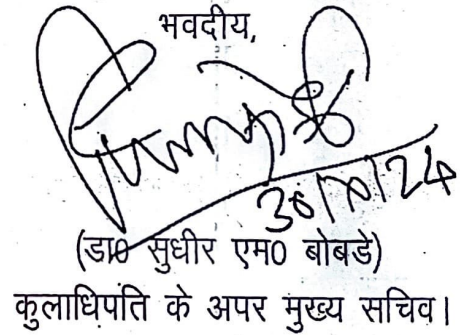 भवदीय,
(डा0 सुधीर एम0 बोबडे)
कुलाधिपति के अपर मुख्य सचिव।